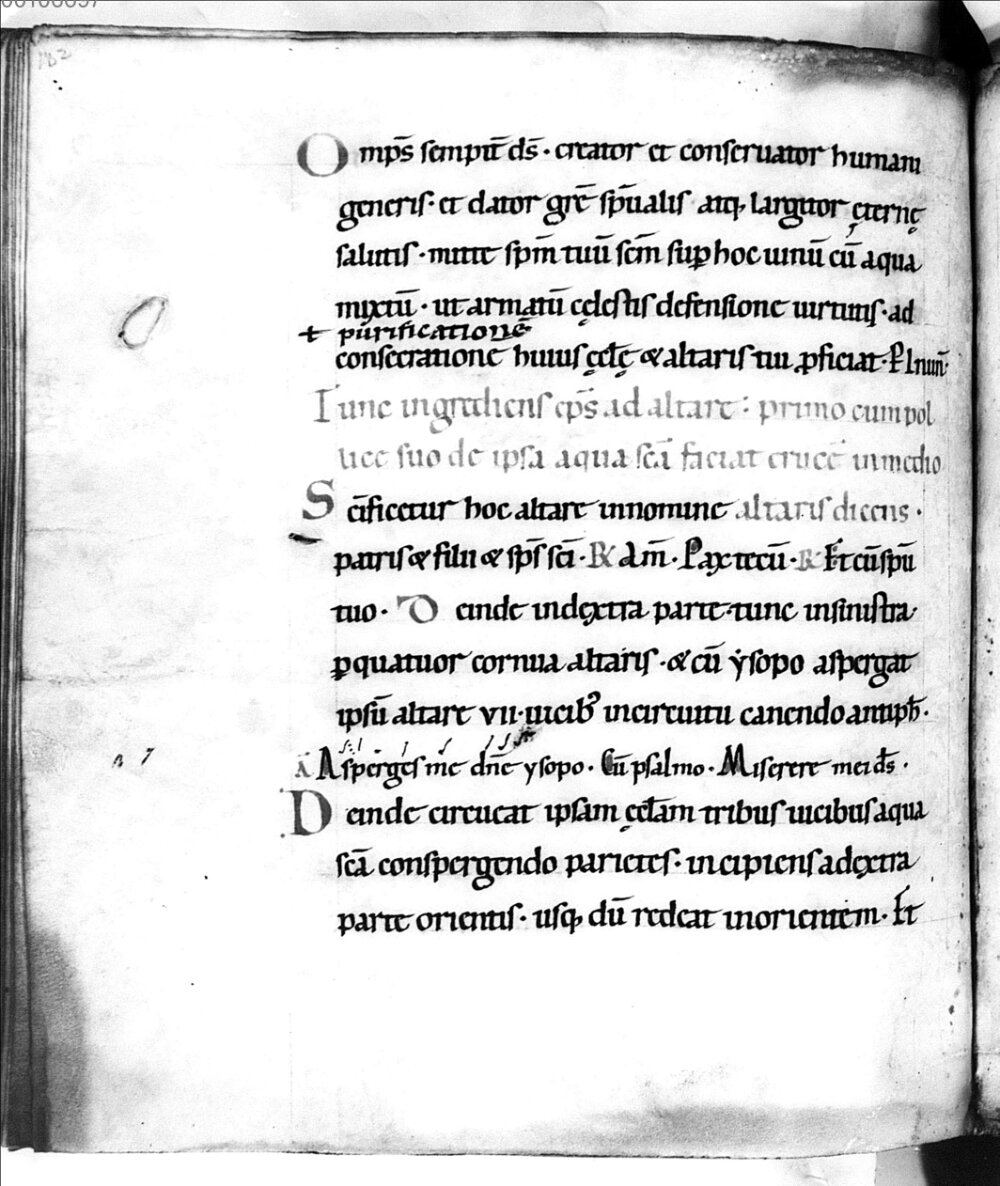 Omp̄s sempit̄ ds̄ · creator et conseruator humani
generis · et dator grē sp̄ualis atq; largitor ęternę
salutis · mitte sp̄m tuū sc̄m sup̱ hoc uinū cū aqua
mixtū · ut armatū cęlestis defensione uirtutis · ad
+ purificationē
consecratione huius ęcl̄ę & altaris tui ꝓficiat · P̱ Inun̄
Tunc ingrediens ep̄s ad altare : primo cum pol
lice suo de ipsa aqua sc̄a faciat crucē inmedio
Sc̄ificetur hoc altare innomine altaris dicens ·
patris & filii & sp̄s sc̄i · R̸ Am̄ · Pax tecū · R̸ Et cū sp̄u
tuo · Deinde indextra parte tunc insinistra
ꝑ quatuor cornua altaris · & cū ẏsopo aspergat
ipsū altare VII · uicib; incircuitu canendo antiph̄ ·
A Asperges me dn̄e ysopo · Cū psalmo · Miserere mei ds̄ ·
Deinde circueat ipsam ęcl̄am tribus uicibus aqua
sc̄a conspergendo parietes · incipiens adextra
parte orientis · usq; dū redeat inorientem · Et